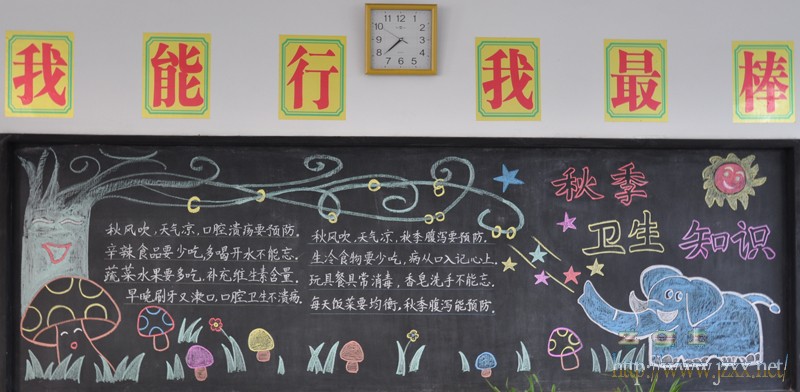 我能行我最棒
12
1
2
3
4
5
6
7
8
9
10
11
秋季
卫生 知识
秋风吹，天气凉，口腔溃疡要预防。
辛辣食品要少吃，多喝开水不能忘。
蔬菜水果要多吃，补充维生素含量，
早晚刷牙又漱口口腔卫生不溃疡。
秋风吹，天气凉，秋季腹泻要预防。
生冷食物要少吃，病从口入记心上，
玩具餐具常消毒，香皂洗手不能忘。
每天饭菜要均衡，秋季腹泻能预防。
http://www.jzxx.net/